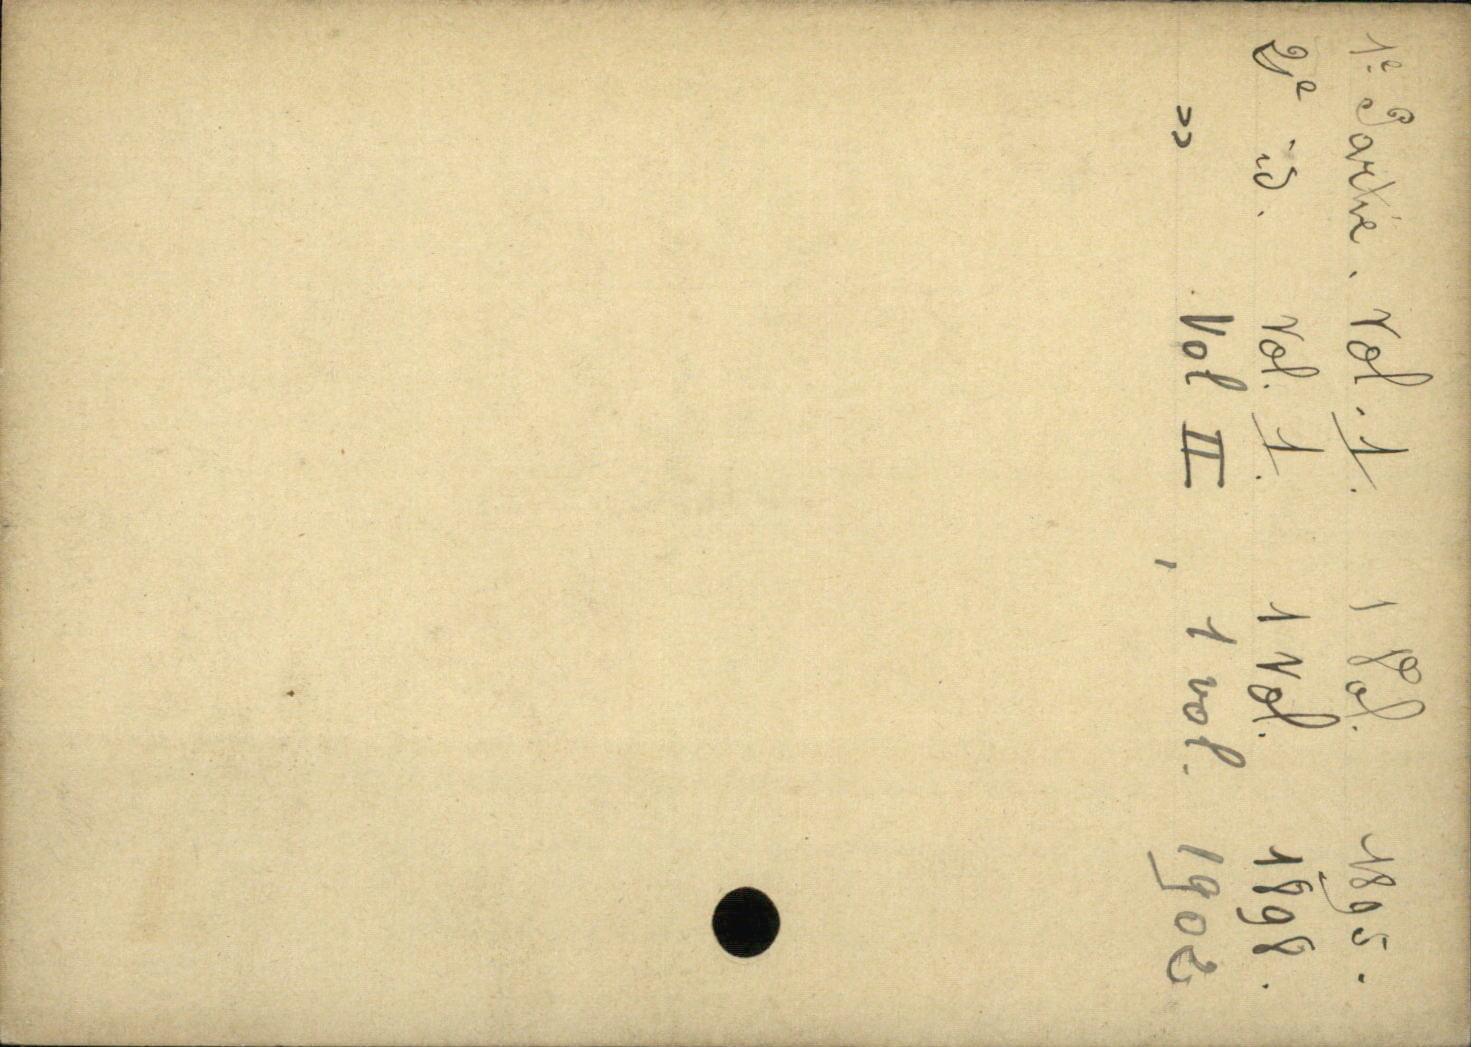 1e Partie. Vol. 1. 1 Vol. 1895.
2e id. Vol. 1. 1 Vol. 1898.
>> Vol II, 1 vol. 1902